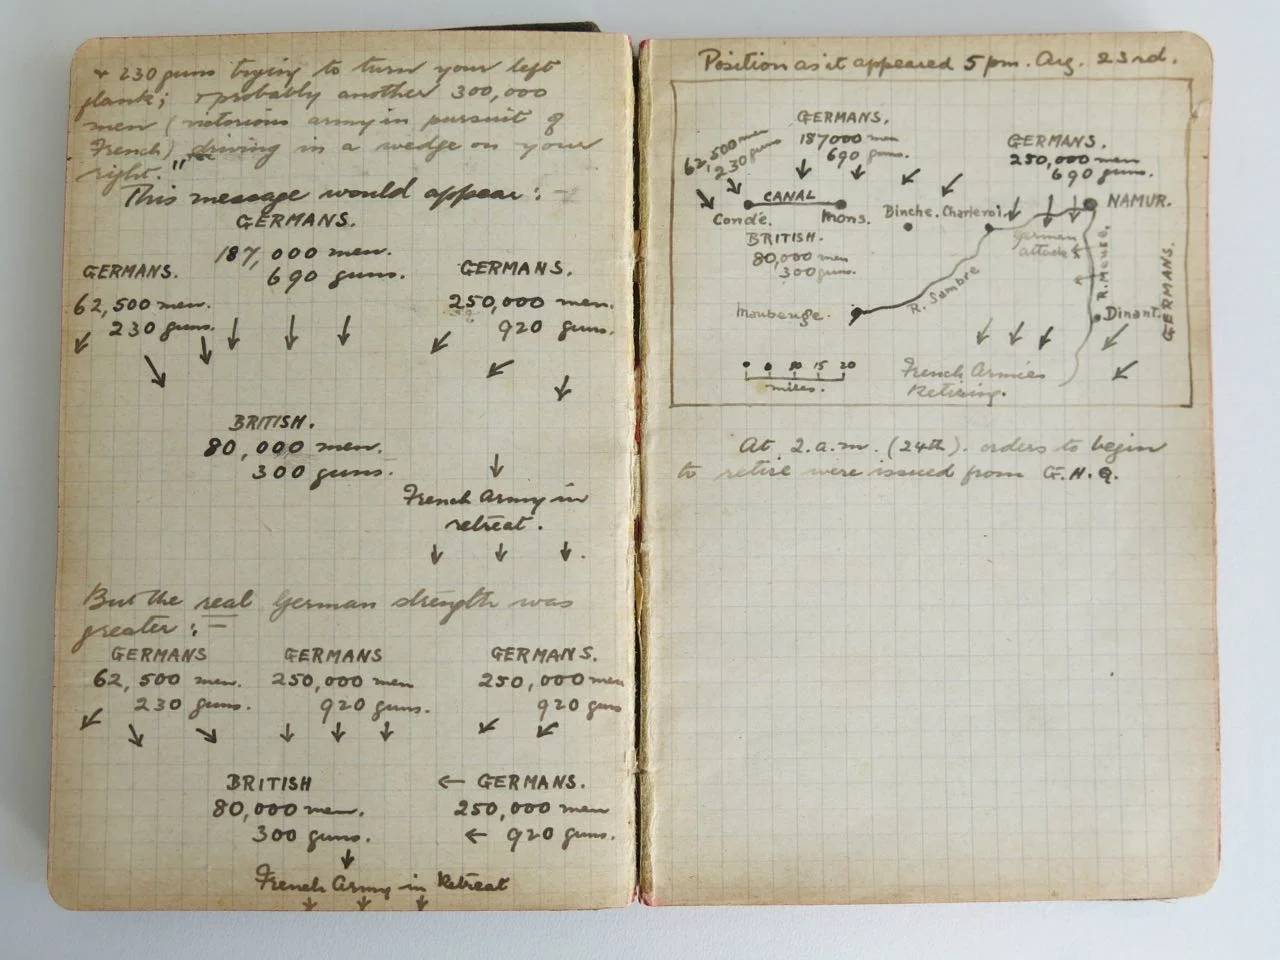 + 230 guns trying to turn your left
flank; + probably another 300,000
men (victorious army in pursuit of
French) driving in a wedge on your
right."
This message would appear:-
GERMANS.
187,000 men.
690 guns.
GERMANS.
62,500 men.
230 guns.
GERMANS.
250,000 men.
920 guns.
BRITISH.
80,000 men.
300 guns.
French Army in
retreat.
But the real German strength was
greater:-
GERMANS
62,500 men.
230 guns.
GERMANS
250,000 men
920 guns.
GERMANS.
250,000 men
920 guns
BRITISH
80,000 men.
300 guns.
← GERMANS.
250,000 men
← 920 guns.
French Army in Retreat
Position as it appeared 5 pm. Aug. 23rd.
62,500 men
230 guns
GERMANS.
187000 men
690 guns.
GERMANS.
250,000 men
690 guns.
CANAL
Condé.
Mons.
Binche.
Charleroi.
NAMUR.
BRITISH.
80,000 men
300 guns.
German
attack
R. Meuse.
GERMANS.
R. Sambre
Maubeuge.
Dinant.
10 15 20
miles.
French Armies
Retiring.
At 2.a.m. (24th). orders to begin
to retire were issued from G.H.Q.